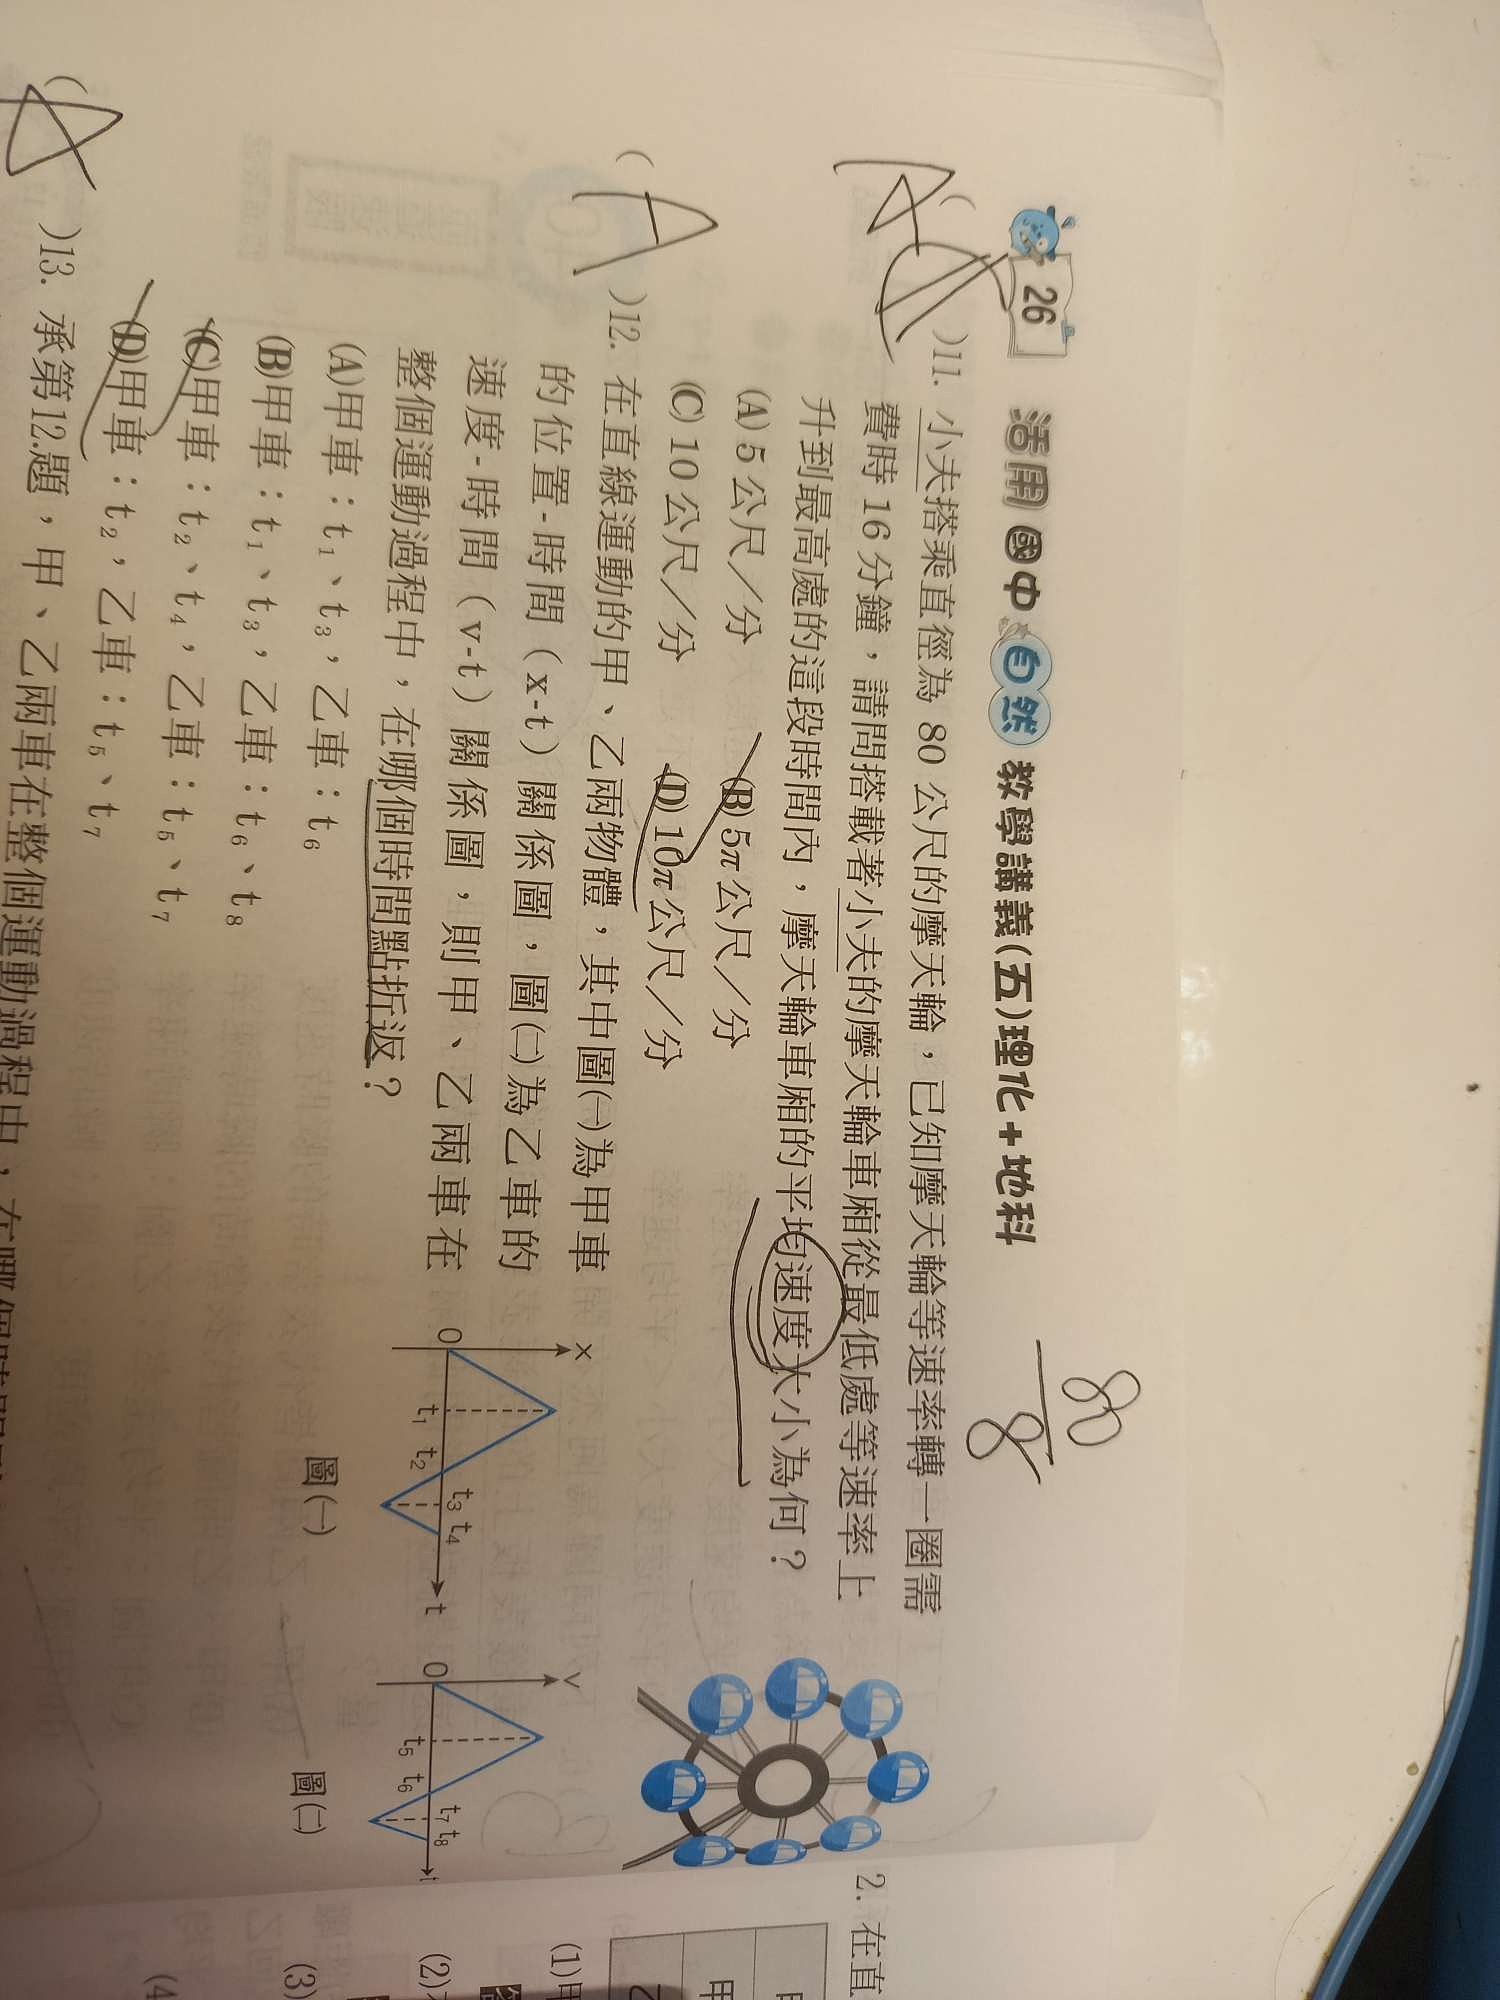 26 活用 國中 自然 教學講義(五)理化+地科
80
8
( )11. 小夫搭乘直徑為 80 公尺的摩天輪，已知摩天輪等速率轉一圈需
費時 16 分鐘，請問搭載著小夫的摩天輪車廂從最低處等速率上
升到最高處的這段時間內，摩天輪車廂的平均速度大小為何？
(A) 5 公尺／分 (B) 5π 公尺／分
(C) 10 公尺／分 (D) 10π 公尺／分
( A )12. 在直線運動的甲、乙兩物體，其中圖㈠為甲車
的位置-時間（x-t）關係圖，圖㈡為乙車的
速度-時間（v-t）關係圖，則甲、乙兩車在
整個運動過程中，在哪個時間點折返？
(A)甲車：t₁、t₃，乙車：t₆
(B)甲車：t₁、t₃，乙車：t₆、t₈
(C)甲車：t₂、t₄，乙車：t₅、t₇
(D)甲車：t₂，乙車：t₅、t₇
x
0 t₁ t₂ t₃ t₄ t
圖㈠
v
0 t₅ t₆ t₇ t₈ t
圖㈡
( )13. 承第12.題，甲、乙兩車在整個運動過程中，在哪個時間
2. 在直
甲
(1)甲
(2)
(3)
(4